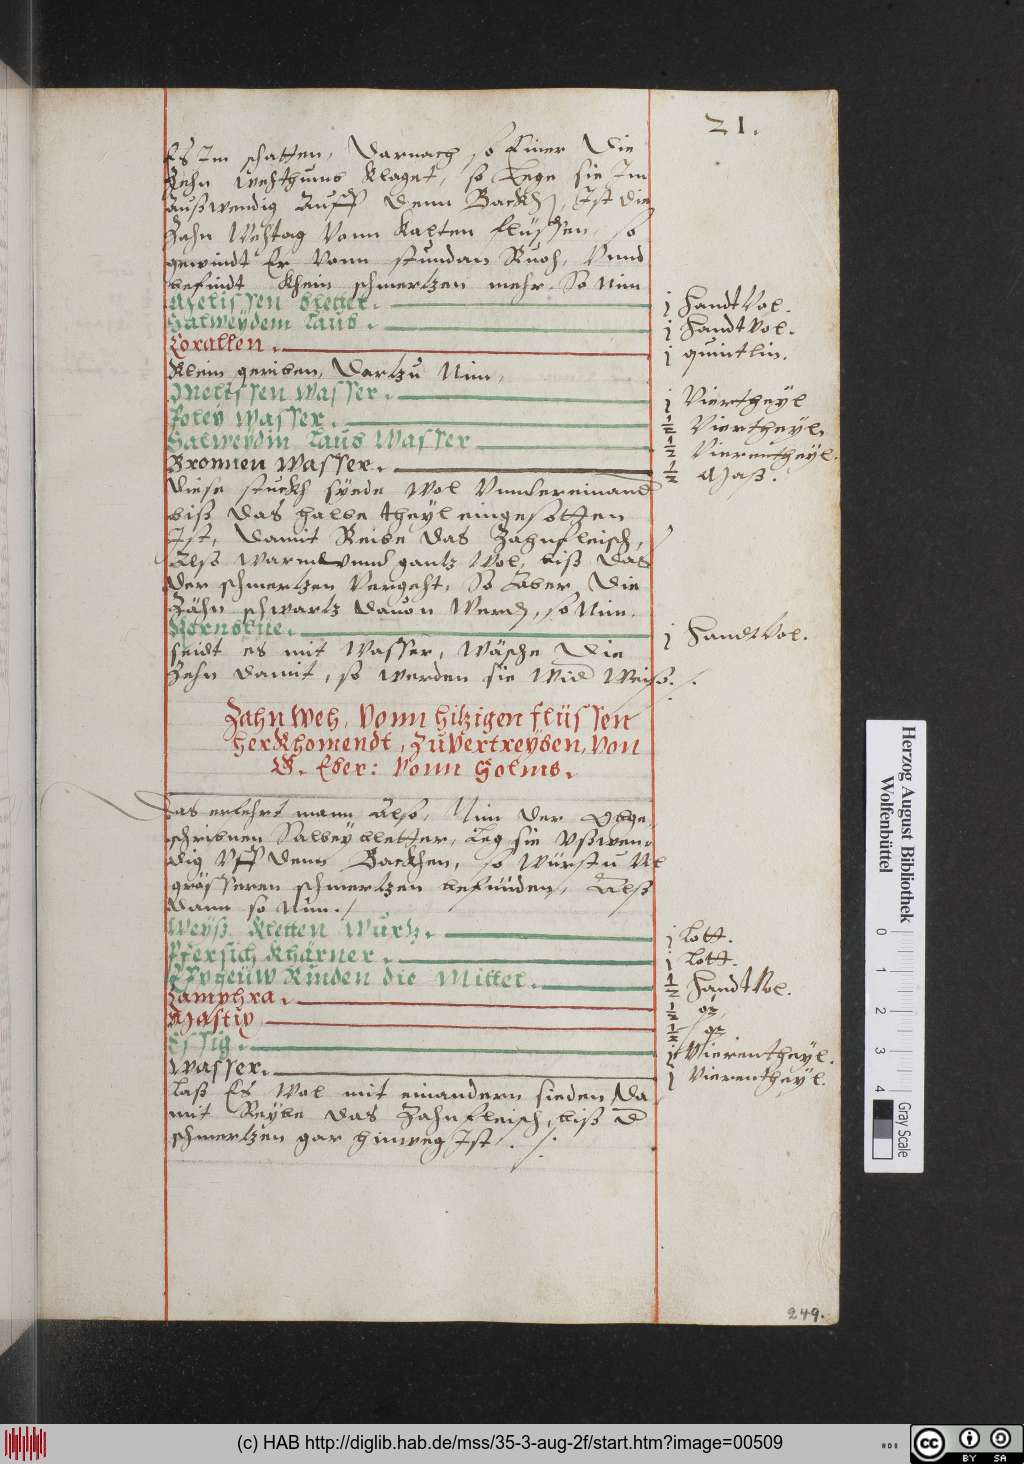 21.
Es Im schatten, Darnach so Einer Die
Zehn wehthumb Klaget, so Lege sie Im
Außwendig Auff Denn Backh, Ist die
Zahn Wehtag Vonn Kalten flüssen, so
gewindt Er Vonn stundan Ruoh, Vnnd
befindt Khein schmertzen mehr. So Nim
Melissen bletter. j HandtVol.
Salweydem Laub. j HandtVol.
Corallen. j quintlin.
Klein geriben, Dartzu Nim,
Melissen Wasser. j Viertheyl
Poley Wasser. ½ Viertheyl.
Salweydin Laub Wasser ½ Vierentheyl.
Bronnen Wasser. ½ Maß.
Diese stuckh syede Wol Vnndereinand
biß das halbe theyl eingesotten
Ist, Damit Reibe das Zahnfleisch,
Alß warm vnnd gantz Wol, biß das
der schmertzen Vergeht. So Aber Die
Zähn schwartz dauon Werd, so Nim.
j HandtVol.
seidt es mit Wasser, Wäsche Die
Zehn damit, so werden sie Wid Weiß.
Zahn Weh, Vonn hitzigen flüssen
herKhomendt, ZuVertreyben, Von
G. Eber: Vonn Solms.
Das erfehrt mann Also, Nim der Obge
schribnen Salbey bletter, Leg sie Vßwen
dig Vff Denn Backhen, so Würstu
grösseren schmertzen befinden, Alß
Dann so Nim.
Weyß Kletten Wurtz. j Lott.
Pfersich Khärner. j Lott.
Rinden die Mittel. ½ HandtVol.
Camphra. ½ qz
Mastix ½ qz
Essig. j Vierentheyl.
Wasser. j Vierentheyl.
Laß Es Wol mit einandern sieden, Da
mit Reybe das Zahnfleisch, biß d
schmertzen gar hinweg Ist.
249.
Herzog August Bibliothek
Wolfenbüttel
0 1 2 3 4
Gray Scale
(c) HAB http://diglib.hab.de/mss/35-3-aug-2f/start.htm?image=00509
cc BY SA